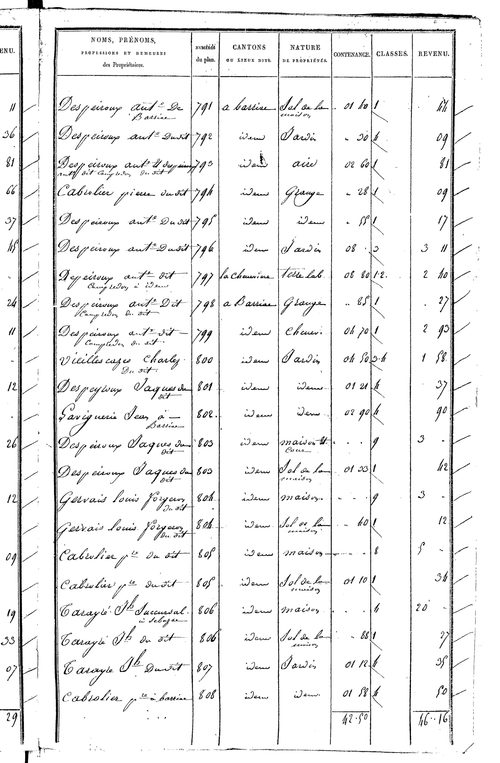 NOMS, PRÉNOMS, PROFESSIONS ET DEMEURES des Propriétaires. | NUMÉROS du plan. | CANTONS OU LIEUX DITS. | NATURE DE PROPRIÉTÉS. | CONTENANCE. | CLASSES. | REVENU.
ENU.
11 Despeiroux ant.e De Barrière 791 a barrière Sol de la maison 01 10 1 44
36 Despeiroux ant.e du dit 792 idem Jardin 30 4 09
81 Despeiroux ant.e 793 idem aire 02 60 1 81
66 Cabrolier pierre du dit 794 idem Grange 28 1 09
37 Despeiroux ant.e Du dit 795 idem idem 55 1 17
45 Despeiroux ant.e Du dit 796 idem Jardin 08 3 3 11
Despeiroux ant.e dit 797 terre lab. 08 80 1.2. 2 40
24 Despeiroux ant.e Dit 798 a Barrière Grange 85 1 27
11 Despeiroux ant.e dit 799 idem chenev. 04 70 1 2 93
Vieillescazes Charles Du dit 800 idem Jardin 04 50 3.4 1 58
12 Despeyroux Jaques du dit 801 idem idem 01 21 4 37
Laviguerie Jean à Barrière 802 idem idem 02 90 4 90
26 Despeiroux Jaques du dit 803 idem maison et cour 9 3
Despeiroux Jaques du dit 803 idem Sol de la maison 01 33 1 42
12 Gervais Louis forgeron du dit 804 idem maison 9 3
Gervais Louis forgeron du dit 804 idem Sol de la maison 40 1 12
09 Cabrolier p.re du dit 805 idem maison 8 5
Cabrolier p.re du dit 805 idem Sol de la maison 01 10 1 34
19 Tarayre J.h Succursal 806 idem maison 6 20
33 Tarayre J.h du dit 806 idem Sol de la maison 88 1 27
07 Tarayre J.h Du dit 807 idem Jardin 01 12 4 35
Cabrolier p.re à barrière 808 idem idem 01 58 4 50
29 42.50 46.16